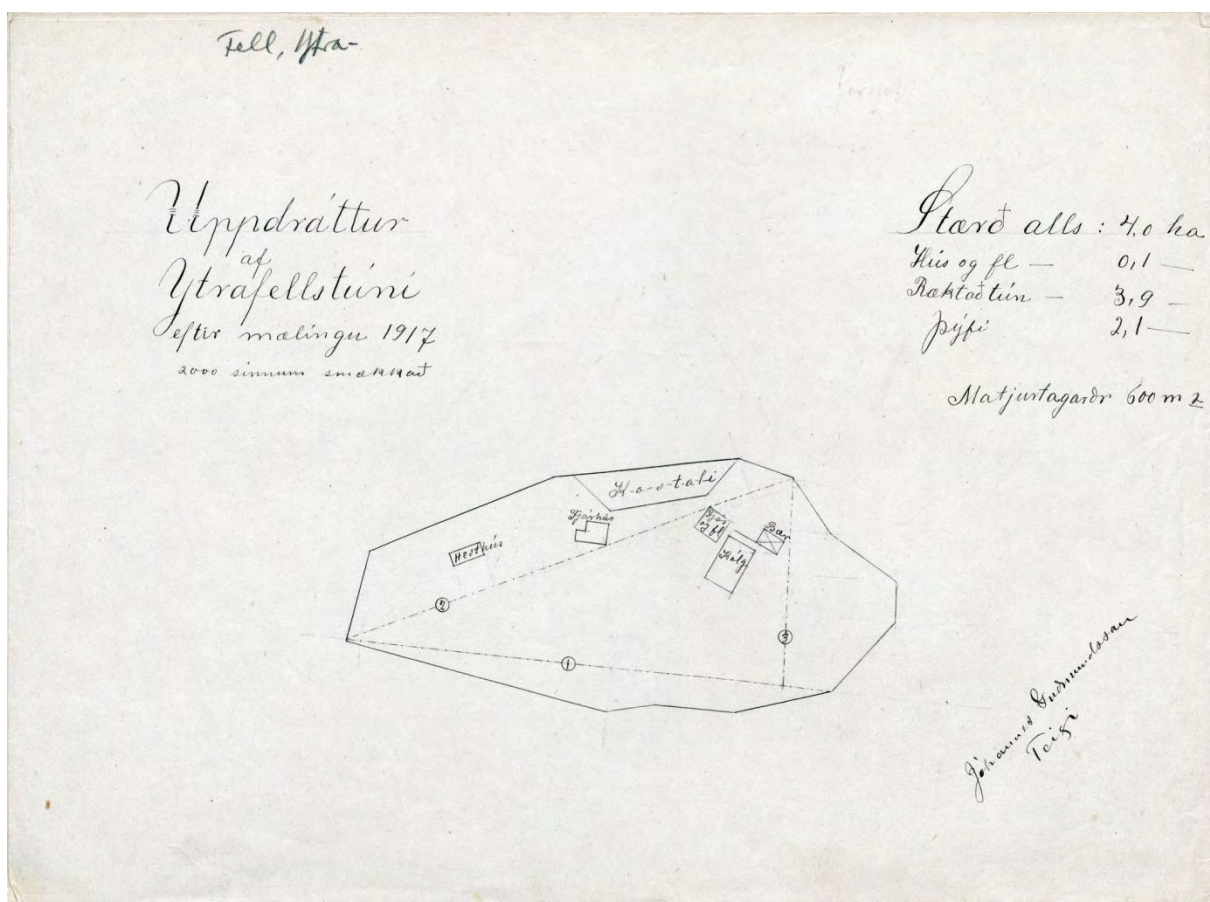 Fell, Ytra-
Uppdráttur
af
Ytrafellstúni
eftir mælingu 1917
2000 sinnum smækkað
Stærð alls : 4,0 ha
Hús og fl — 0,1 —
Ræktað tún — 3,9 —
Þýfi 2,1 —
Matjurtagarðr 600 m 2
K-a-s-t-a-l-i
Fjárhús
Fjós
og fl
Bær
Hesthús
Kálg
2
3
1
Jóhannes Guðmundsson
Teigi